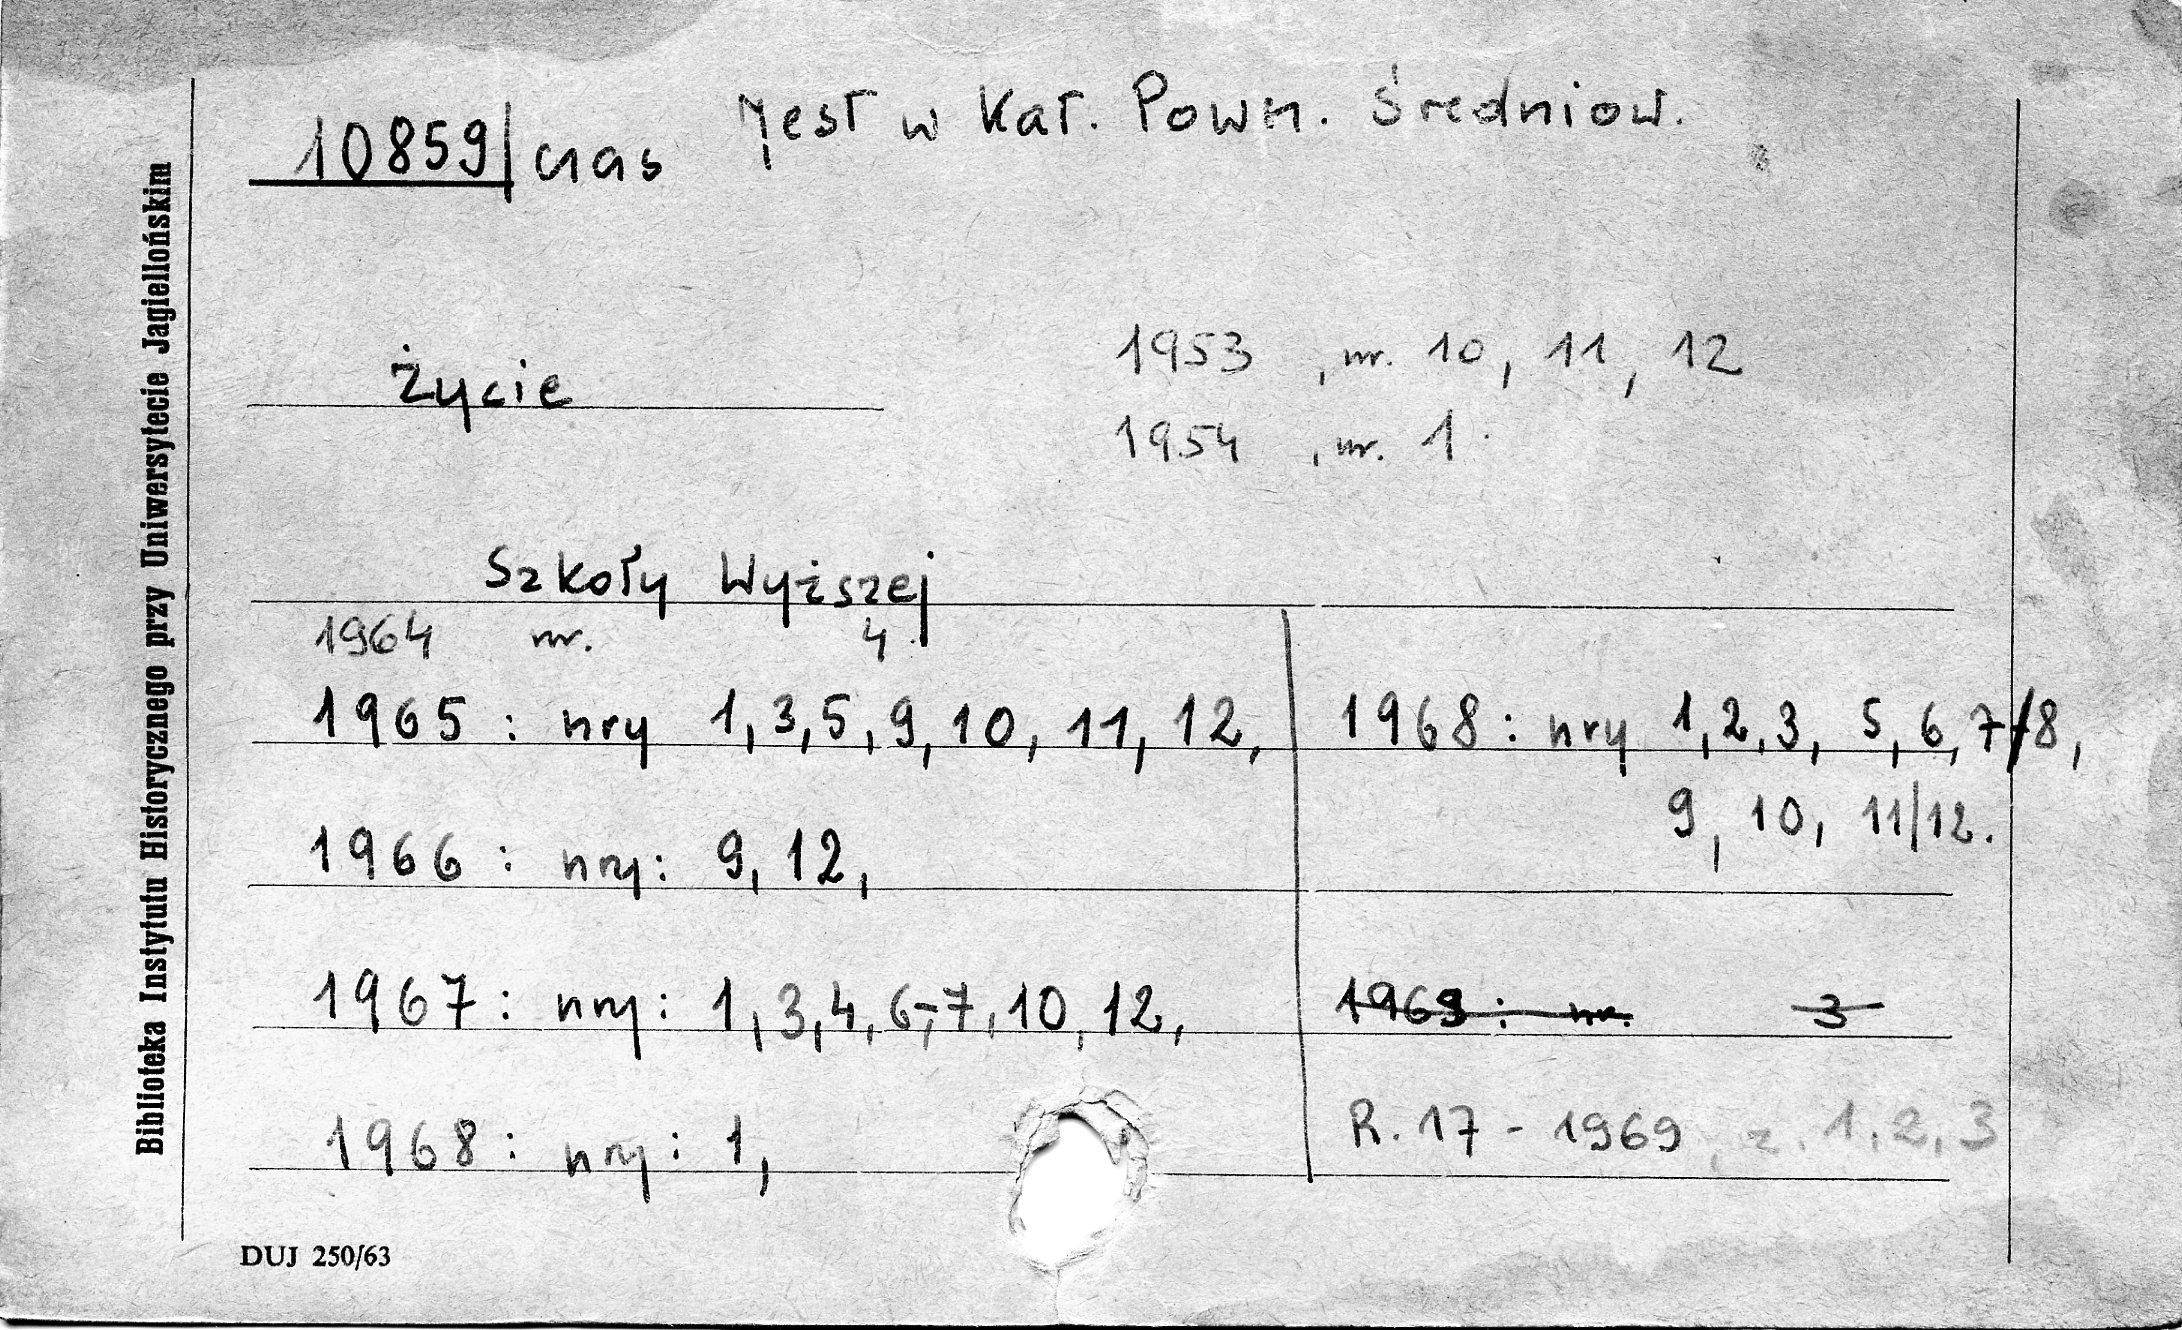 10859/czas
Jest w Kat. Powsz. Średniow.
Biblioteka Instytutu Historycznego przy Uniwersytecie Jagiellońskim
Życie
1953, nr. 10, 11, 12
1954, nr. 1.
Szkoły Wyższej
1964 nr. 4.
1965: nry 1,3,5,9,10,11,12,
1966: nry: 9,12,
1967: nry: 1,3,4,6,-7,10,12,
1968: nry: 1,
1968: nry 1,2,3, 5,6,7/8,
9, 10, 11/12.
1969: nr. 3
R. 17 - 1969, z. 1,2,3
DUJ 250/63